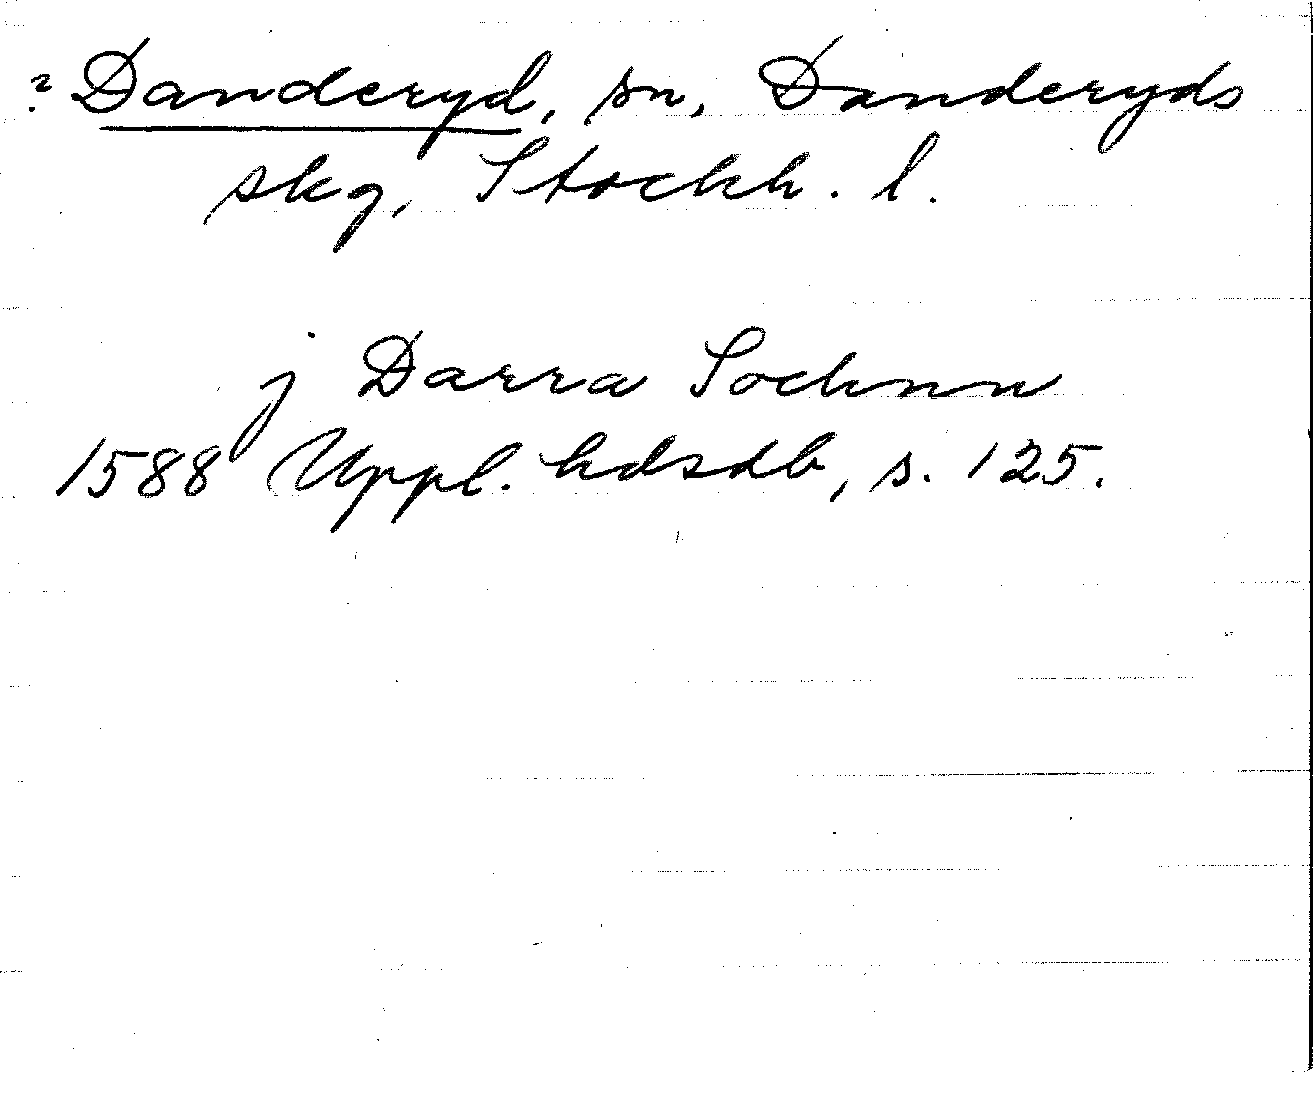 ? Danderyd, sn, Danderyds
skg, Stockh. l.
j Darra Sochnn
1588 Uppl. hdsdb, s. 125.